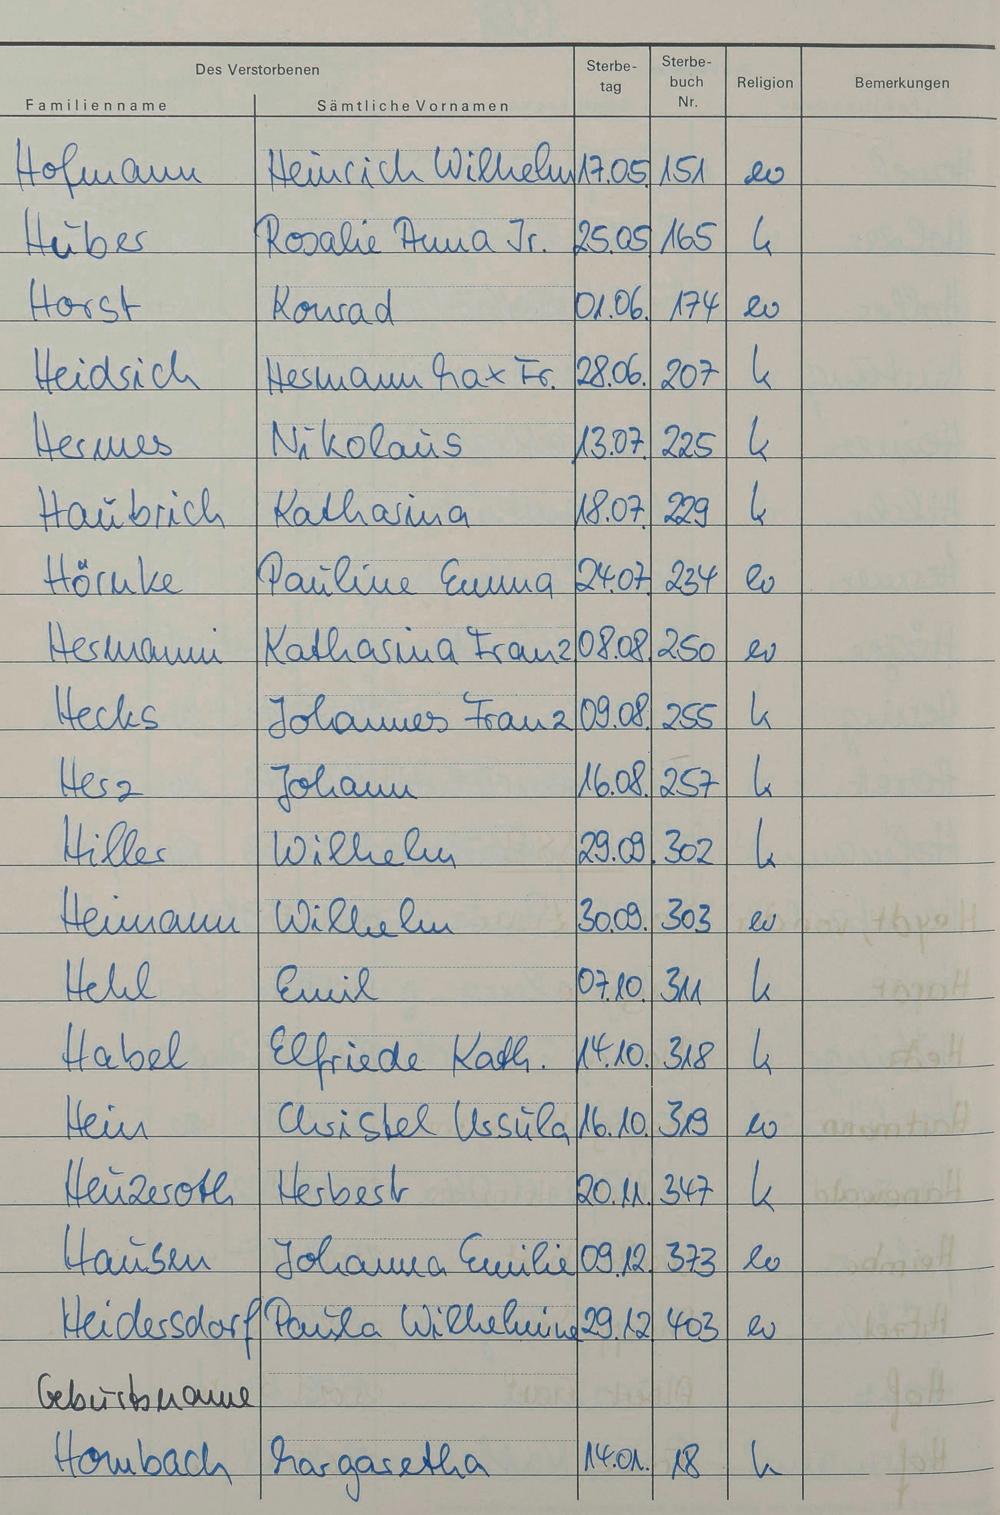 Des Verstorbenen Sterbe- Sterbe-
tag buch Religion Bemerkungen
Familienname Sämtliche Vornamen Nr.
Hofmann Heinrich Wilhelm 17.05 151 ev
Huber Rosalie Anna Fr. 25.05 165 k
Horst Konrad 01.06. 174 ev
Heidrich Hermann Max Fr. 28.06. 207 k
Hermes Nikolaus 13.07. 225 k
Haubrich Katharina 18.07. 229 k
Hörnke Pauline Emma 24.07. 234 ev
Hermanni Katharina Franz 08.08. 250 ev
Hecks Johannes Franz 09.08. 255 k
Herz Johann 16.08. 257 k
Hiller Wilhelm 29.09. 302 k
Heimann Wilhelm 30.09. 303 ev
Hehl Emil 07.10. 311 k
Habel Elfriede Kath. 14.10. 318 k
Hein Christel Ursula 16.10. 319 ev
Heuzeroth Herbert 20.11. 347 k
Hausen Johanna Emilie 09.12. 373 ev
Heidersdorf Paula Wilhelmine 29.12 403 ev
Geburtsname
Hombach Margaretha 14.01. 18 k